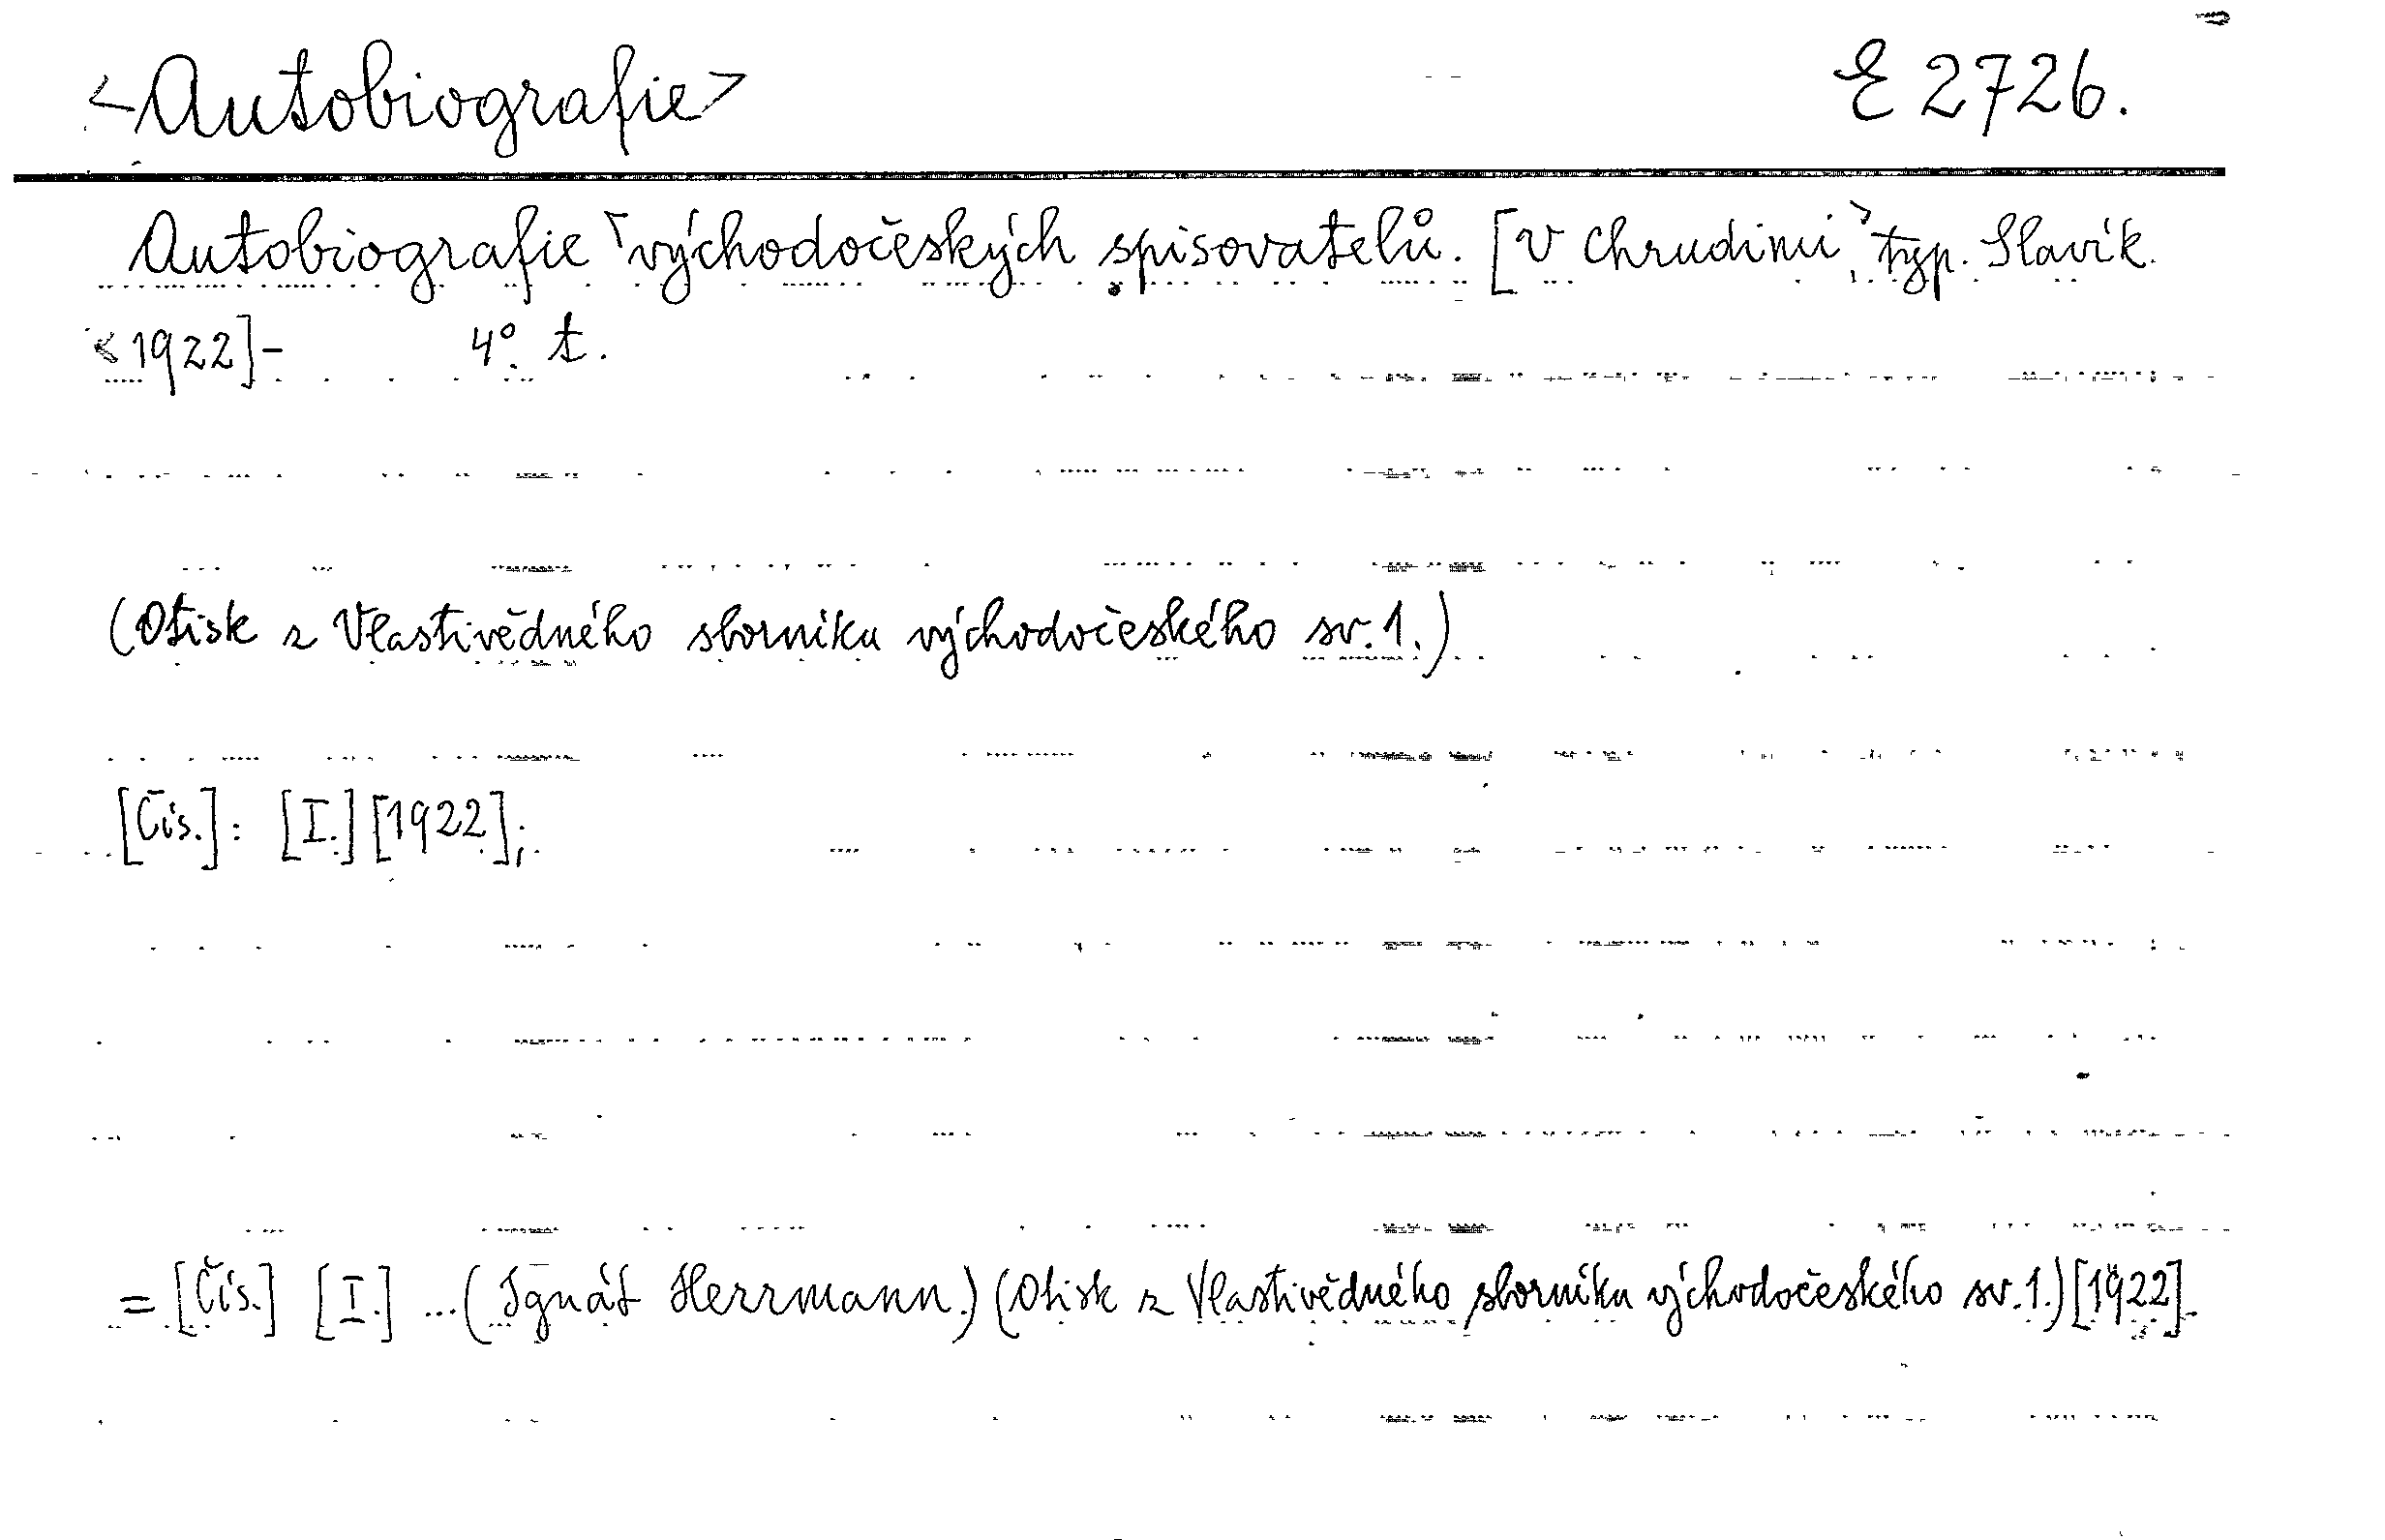 <Autobiografie> E 2726.
Autobiografie východočeských spisovatelů. [V Chrudimi, typ. Slavík.
1922]- 4°. t.
(Otisk z Vlastivědného sborníku východočeského sv. 1.)
[Čís.]: [I.] [1922];
= [Čís.] [I.] ... (Ignát Herrmann.) (Otisk z Vlastivědného sborníku východočeského sv. 1.) [1922].